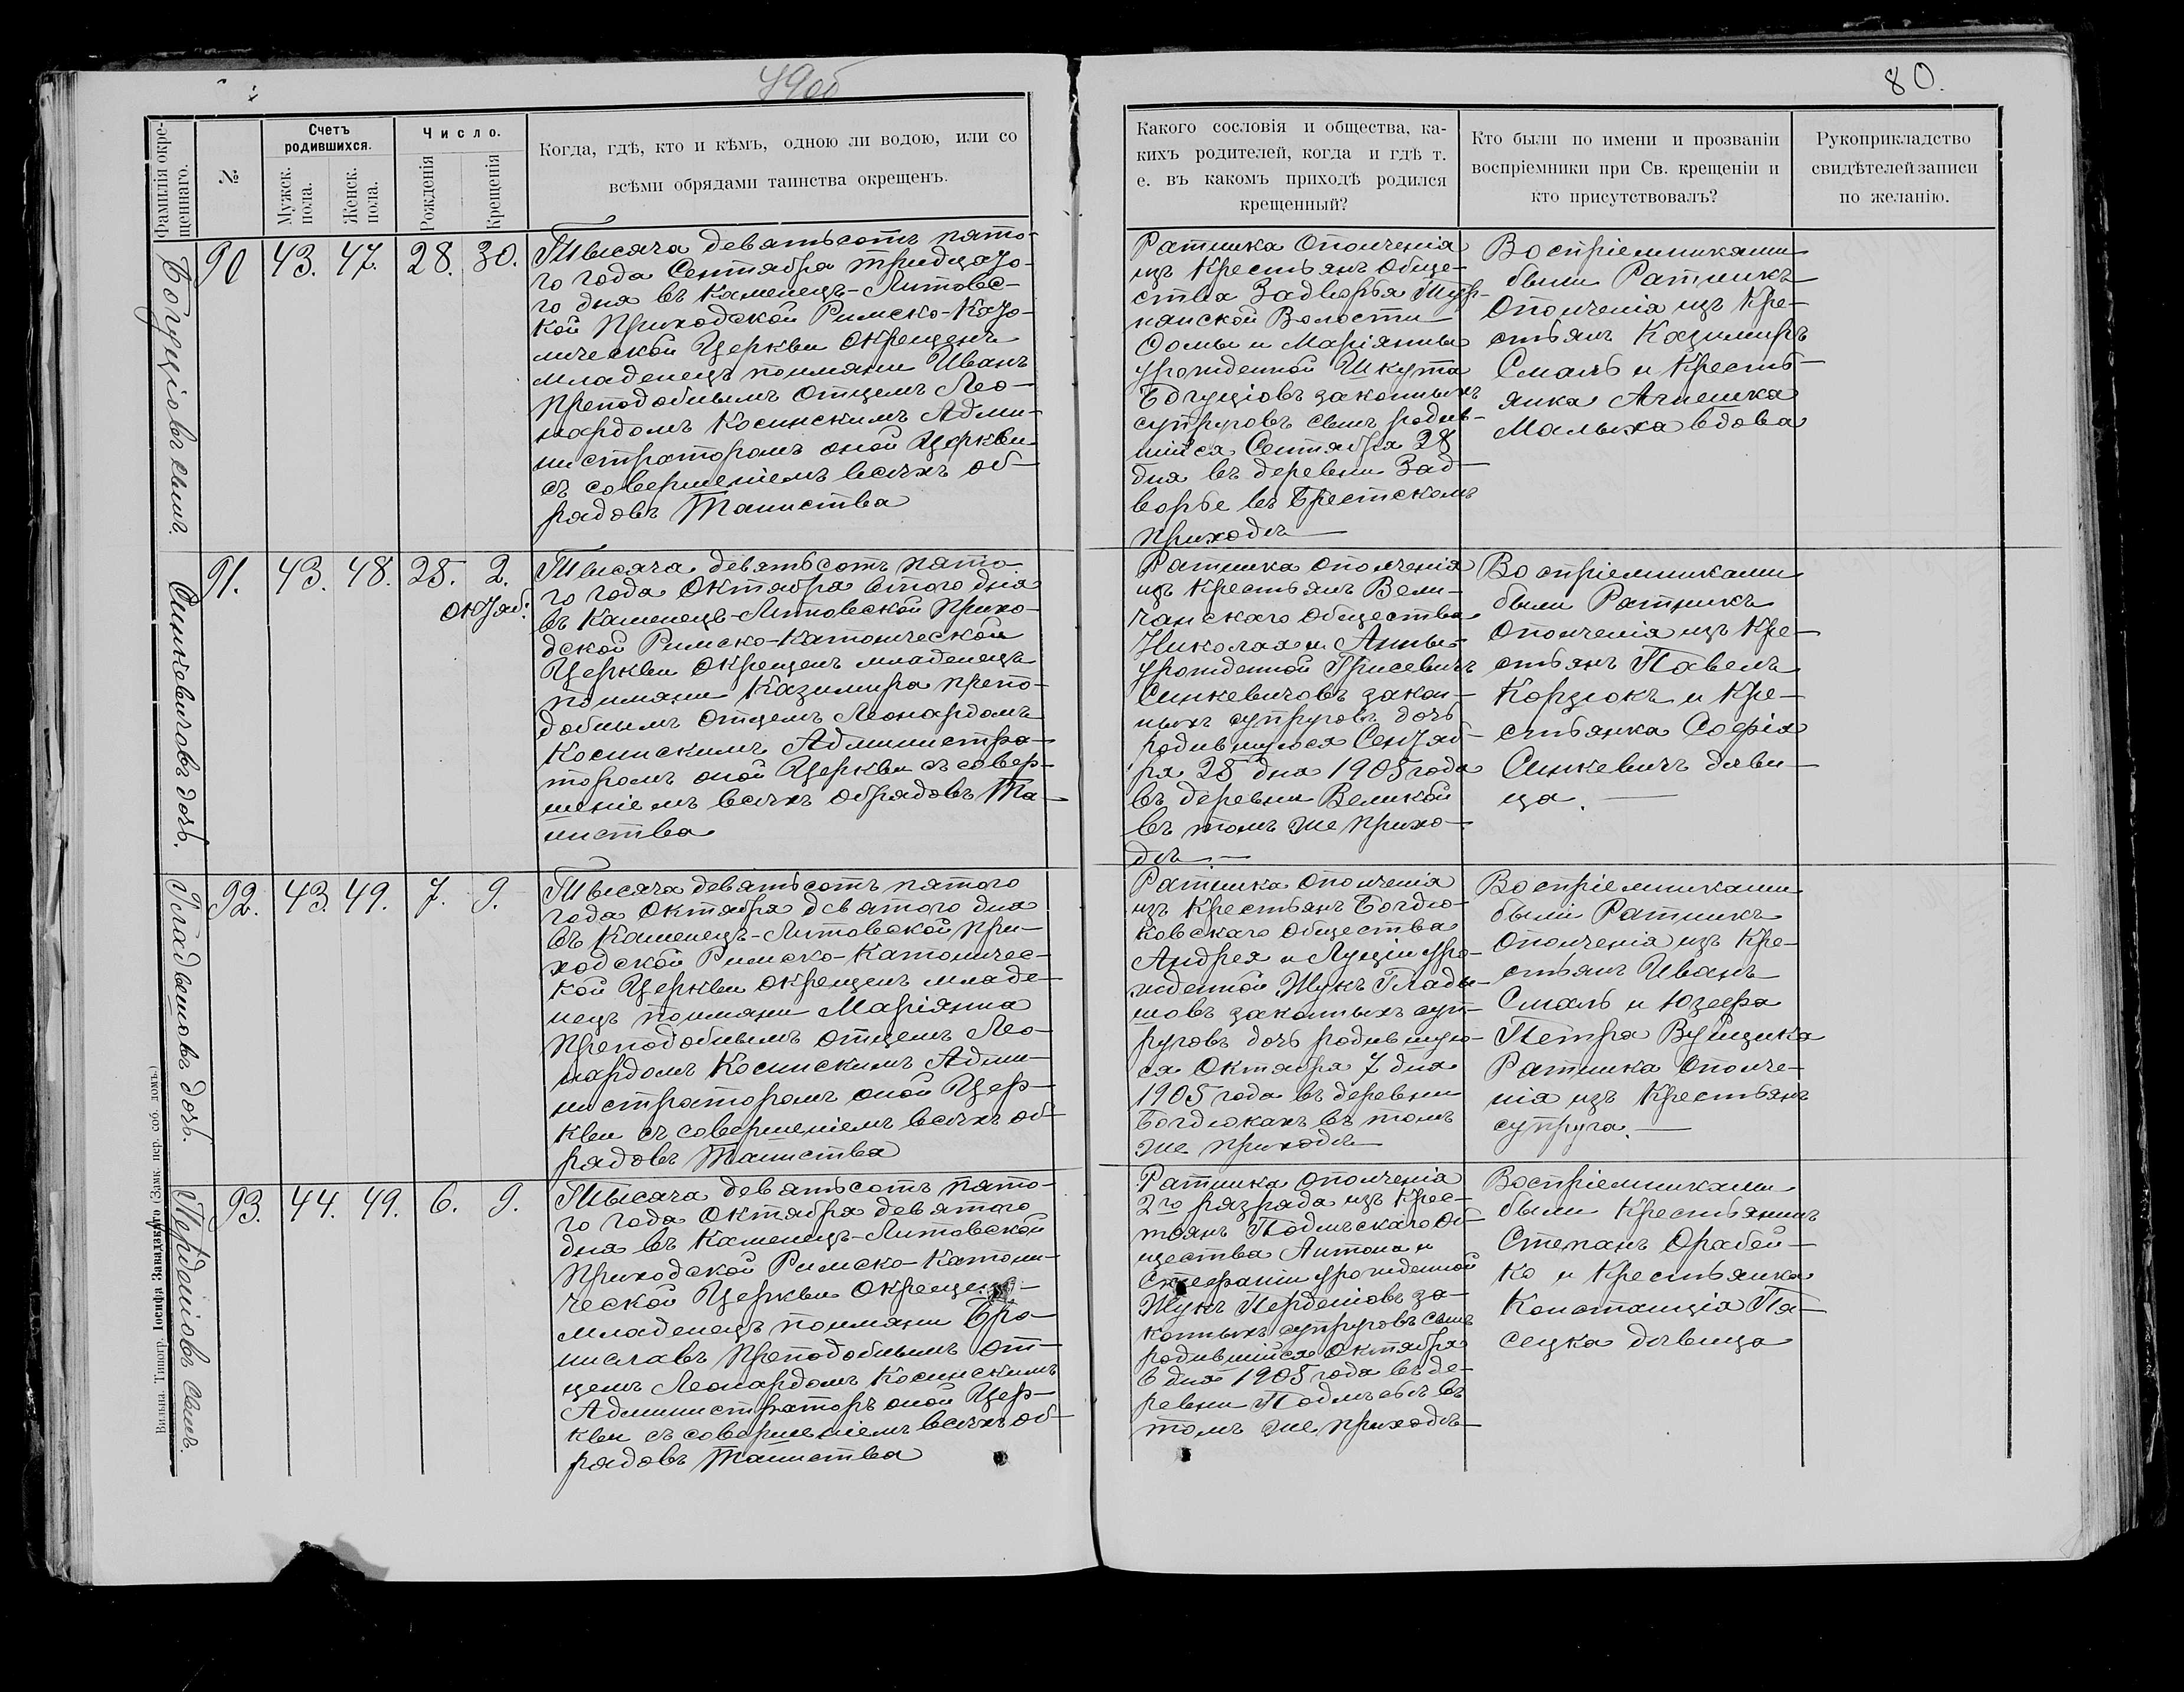 79об
80.
Фамилія окре-
щеннаго.
№
Счетъ
родившихся.
Мужск.
пола.
Женск.
пола.
Число.
Рожденія
Крещенія
Когда, гдѣ, кто и кѣмъ, одною ли водою, или со
всѣми обрядами таинства окрещенъ.
Какого сословія и общества, ка-
кихъ родителей, когда и гдѣ т.
е. въ какомъ приходѣ родился
крещенный?
Кто были по имени и прозваніи
воспріемники при Св. крещеніи и
кто присутствовалъ?
Рукоприкладство
свидѣтелей записи
по желанію.
Богуціовъ сынъ.
90 43. 47. 28. 30.
Тысяча девятьсотъ пято-
го года Сентября тридцато-
го дня въ Каменецъ-Литовс-
кой Приходской Римско-Като-
лической Церкви окрещенъ
младенецъ поимяни Иванъ
Преподобнымъ Отцемъ Лео-
нардомъ Косинскимъ Адми-
нистраторомъ оной Церкви
съ совершеніемъ всѣхъ об-
рядовъ Таинства
Ратника Ополченія
изъ Крестьянъ Обще-
ства Задворья Тур-
нянской Волости
Ѳомы и Маріянны
урожденной Шкута
Богуціовъ законныхъ
супруговъ сынъ родив-
шійся Сентября 28
дня въ деревни Зад-
ворье въ Брестскомъ
приходѣ
Воспріемниками
были Ратникъ
Ополченія изъ Кре-
стьянъ Казимиръ
Смаль и Кресть-
янка Агнешка
Малыха вдова
Синкевичовъ дочь.
91. 43. 48. 25. 2.
октяб:
Тысяча девятьсотъ пято-
го года Октября втого дня
въ Каменецъ-Литовской Прихо-
дской Римско-Католической
Церкви окрещенъ младенецъ
поимяни Казимира препо-
добнымъ Отцемъ Леонардомъ
Косинскимъ Администра-
торомъ оной Церкви съ совер-
шеніемъ всѣхъ обрядовъ Та-
инства
Ратника ополченія
изъ Крестьянъ Вели-
чанскаго Общества
Николая и Анны
урожденной Грисевичъ
Синкевичовъ закон-
ныхъ супруговъ дочь
родившуюся Сентяб-
ря 25 дня 1905 года
въ деревни Великой
въ томъ же прихо-
дѣ.
Воспріемниками
были Ратникъ
Ополченія изъ Кре-
стьянъ Павелъ
Корзюкъ и Кре-
стьянка Софія
Синкевичъ дѣви-
ца.
Гладышовъ дочь.
92. 43. 49. 7. 9.
Тысяча девятьсотъ пятого
года Октября девятого дня
въ Каменецъ-Литовской При-
ходской Римско-Католичес-
кой Церкви окрещенъ младе-
нецъ поимяни Маріянна
Преподобнымъ отцемъ Лео-
нардомъ Косинскимъ Адми-
нистраторомъ оной Цер-
кви съ совершеніемъ всѣхъ об-
рядовъ Таинства
Ратника Ополченія
изъ Крестьянъ Богдю-
ковскаго Общества
Андрея и Луціи уро-
жденной Жукъ Глады-
шовъ законныхъ суп-
руговъ дочь родившую-
ся Октября 7 дня
1905 года въ деревни
Богдюкахъ въ томъ
же приходѣ
Воспріемниками
были Ратникъ
Ополченія изъ Кре-
стьянъ Иванъ
Смаль и Юзефа
Петра Вуйщика
Ратника Ополче-
нія изъ Крестьянъ
супруга.
Пердешовъ сынъ.
93. 44. 49. 6. 9.
Тысяча девятьсотъ пято-
го года Октября девятого
дня въ Каменецъ-Литовской
Приходской Римско-Католи-
ческой Церкви Окрещенъ
младенецъ поимяни Бро-
ниславъ Преподобнымъ От-
цемъ Леонардомъ Косинскимъ
Администраторъ оной Цер-
кви съ совершеніемъ всѣхъ об-
рядовъ Таинства
Ратника ополченія
2го разряда изъ Крес-
тоянъ Подлѣскаго Об-
щества Антона и
Стефаніи урожденной
Жукъ Пердешовъ за-
конныхъ супруговъ сынъ
родившійся Октября
6 дня 1905 года въ де-
ревни въ
томъ же приходѣ
Воспріемниками
были Крестьянинъ
Степанъ Орабей-
ко и Крестьянка
Констанція Пя-
сецка дѣвица
Вильна. Типогр. Іосифа Завадзкаго (Замк. пер. соб. домъ.)